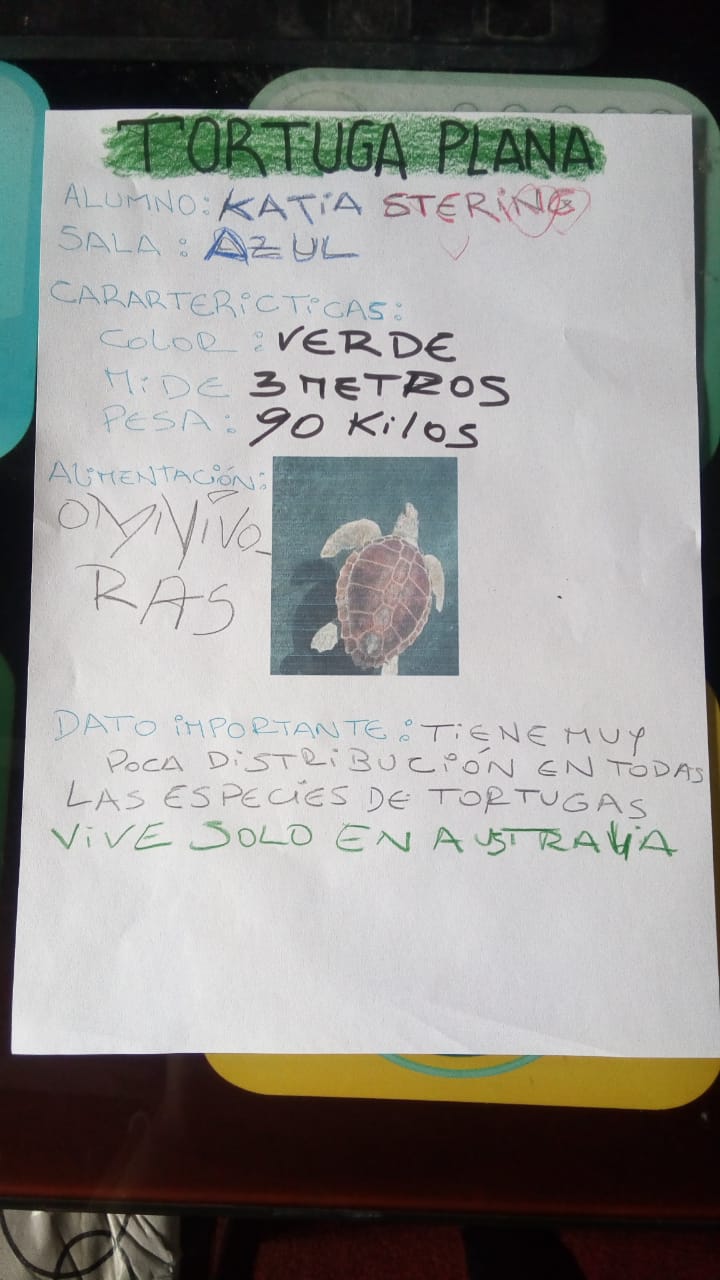 TORTUGA PLANA
ALUMNO: KATIA STERING
SALA: AZUL
CARARTERICTICAS:
COLOR: VERDE
MIDE 3 METROS
PESA: 90 Kilos
ALIMENTACIÓN:
OMNIVO-
RAS
DATO IMPORTANTE: TIENE MUY
POCA DISTRIBUCIÓN EN TODAS
LAS ESPECIES DE TORTUGAS
VIVE SOLO EN AUSTRALIA